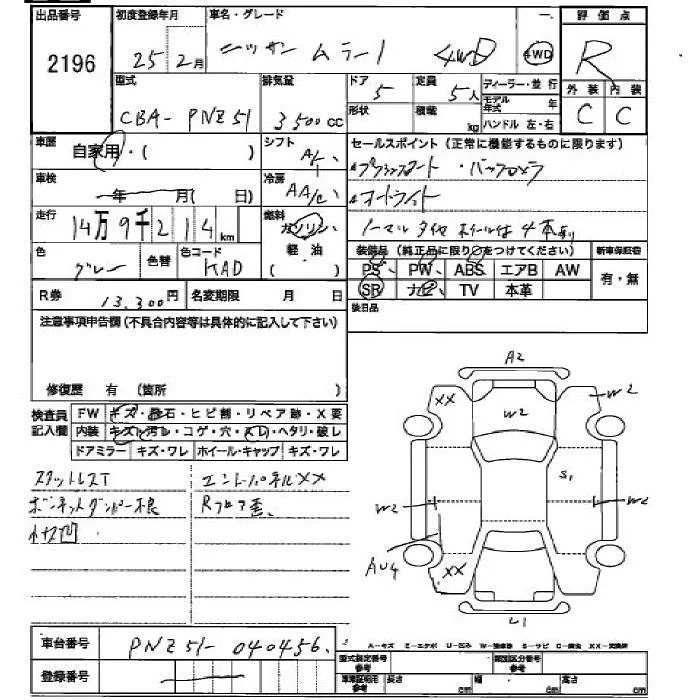 出品番号 初度登録年月 車名・グレード 評価点
2196 25年 2月 ニッサン ムラーノ 4WD 4WD R
型式 排気量 ドア 定員 ディーラー・並行 外装 内装
CBA-PNZ51 3500cc 5 5人 モデル年式 年 C C
形状 積載 kg ハンドル 左・右
車歴 自家用・( ) シフト A/ セールスポイント(正常に機能するものに限ります)
車検 年 月( 日) 冷房 AA/C ・バックカメラ
オートライト
走行 14万9千214km 燃料 ガソリン 軽油 ノーマルタイヤ ホイール付 4本
色 グレー 色替 色コード KAD 装備品(純正品に限り○をつけてください) 新車保証書
PS PW ABS エアB AW 有・無
R券 13,300円 名変期限 月 日 SR ナビ TV 本革
注意事項申告欄(不具合内容等は具体的に記入して下さい) 装日品
修復歴 有 (箇所 )
検査員記入欄 FW キズ・飛石・ヒビ割・リペア跡・X要
内装 キズ・汚レ・コゲ・穴・スレ・ヘタリ・破レ
ドアミラー キズ・ワレ ホイール・キャップ キズ・ワレ
スタットレスT エンドパネルXX
ボンネットダンパー不良 Rフロア歪
A2
XX W2 W2
S1
W2 W2
AU4
XX
L1
車台番号 PNZ51-040456
登録番号
A-キズ E-エクボ U-凹み W-補修跡 S-サビ C-腐食 XX-交換済
型式指定番号 参考 類別区分番号 参考
車庫証明用 参考 長さ cm 幅 cm 高さ cm